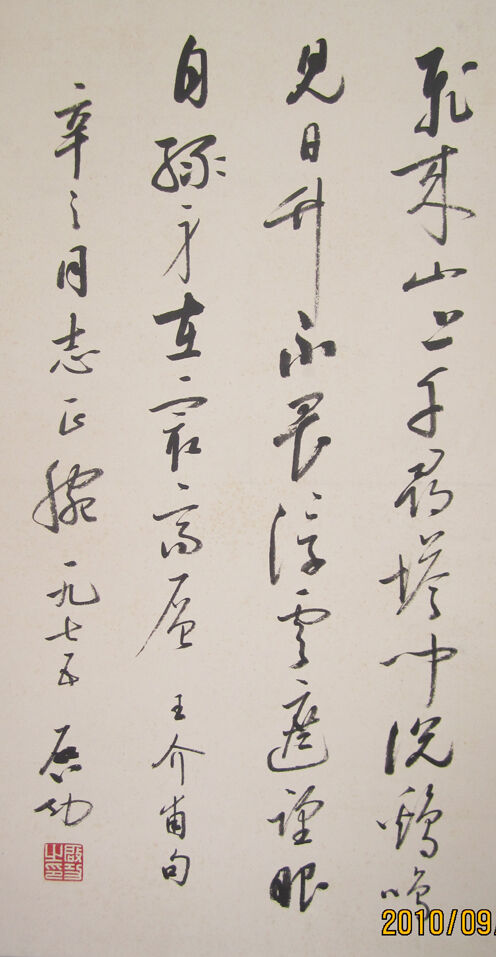 飛來山上千尋塔聞說鷄鳴
見日升不畏浮雲遮望眼
自緣身在最高層 王介甫句
辛之同志正腕 一九七五 啟功
啟功之印
2010/09